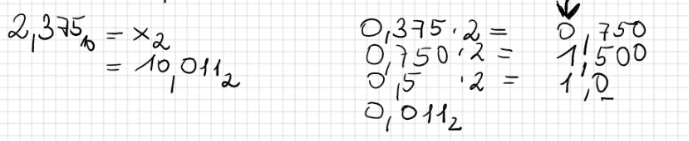 2,375₁₀ = x₂
= 10,011₂
0,375 · 2 = 0,750
0,750 · 2 = 1,500
0,5 · 2 = 1,0
0,011₂